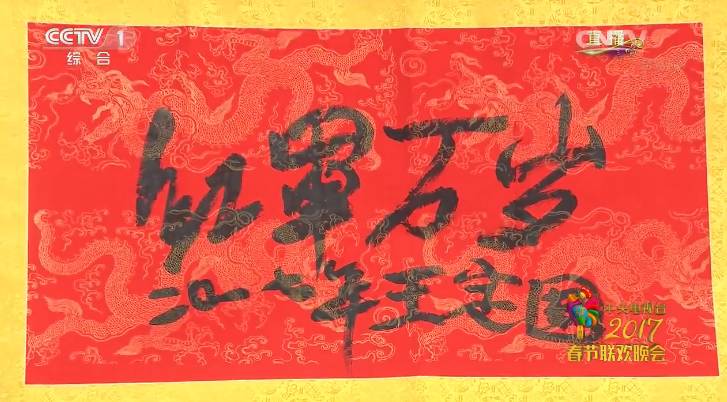 CCTV 1
综合
CNTV
直播
红軍万岁
二〇一七年王定国
中央电视台
2017
春节联欢晚会